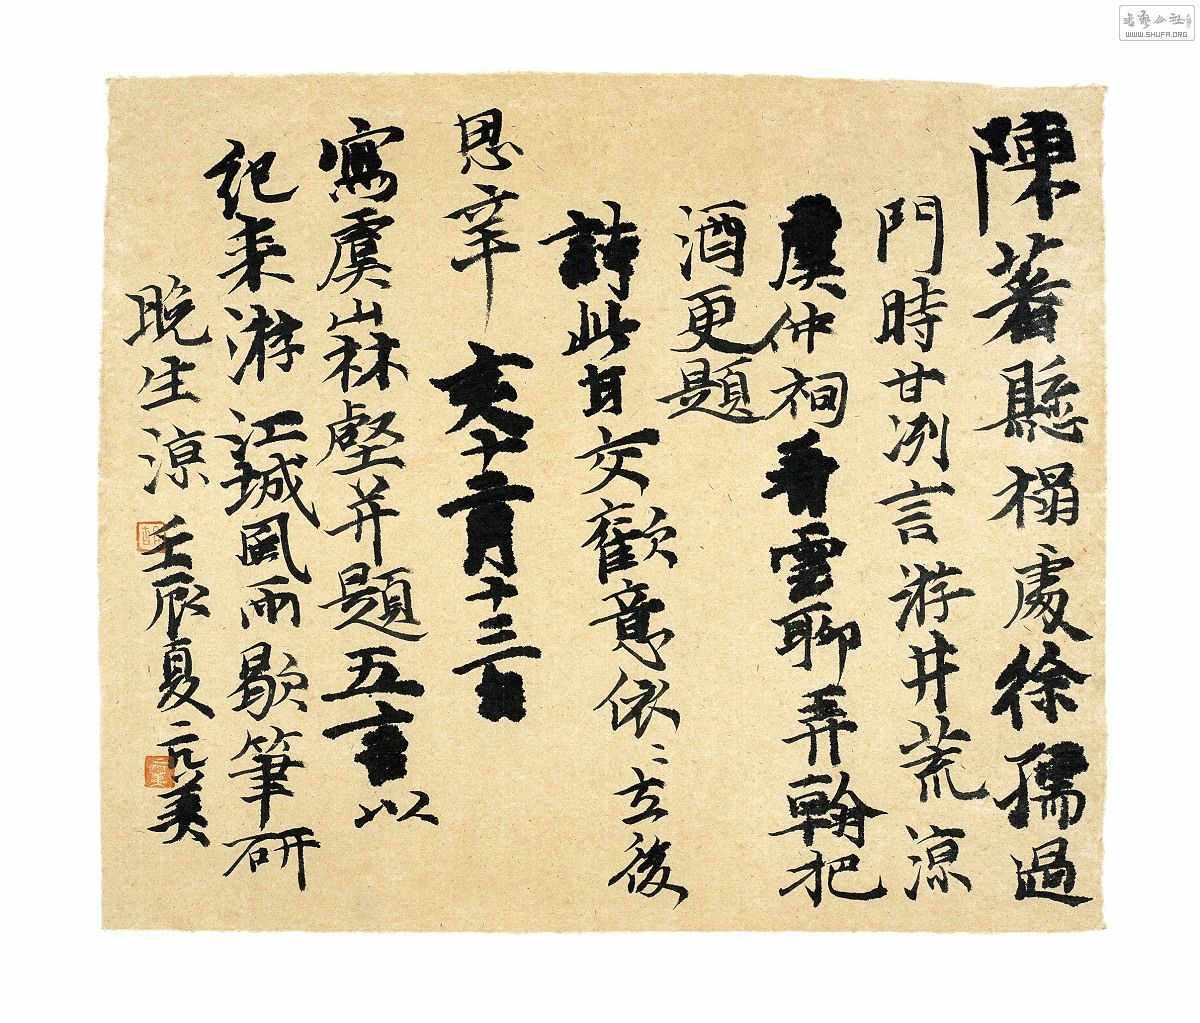 陳蕃懸榻處徐孺過
門時甘冽言游井荒涼
虞仲祠看雲聊弄翰把
酒更題
詩此日交歡意依〻在後
思辛
亥十二月十三日
寫虞山林壑并題五言以
紀来游江城風雨歇筆研
晚生涼壬辰夏元美
書藝公社
WWW.SHUFA.ORG